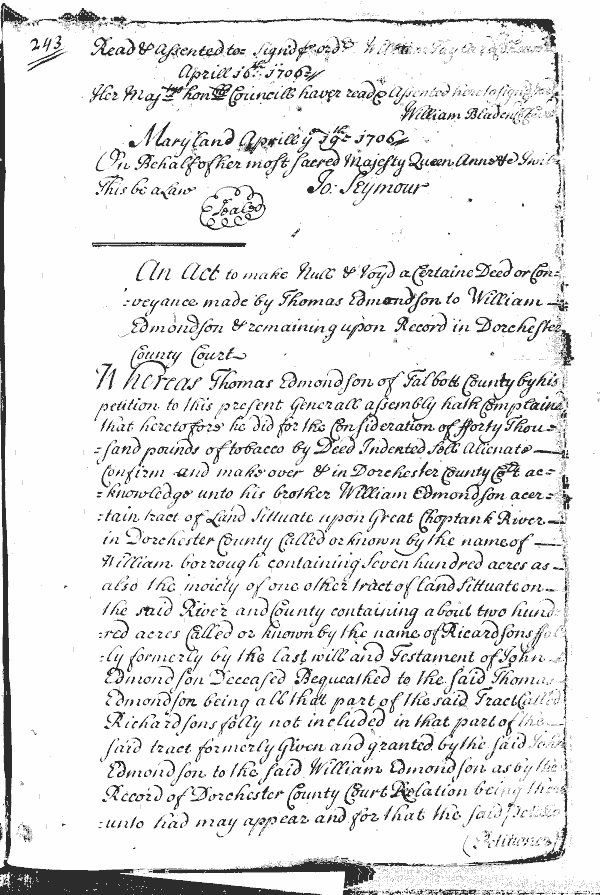 243
Read & Assented to. Signd p ord.
Aprill 16th. 1706
Her Majtys honble Councill haveing read & Assented hereto signd
William Bladen
Maryland Aprill ye 19th 1706
On Behalf of her most Sacred Majesty Queen Anne &c I will
This be a Law Jo: Seymour
Sealed
An Act to make Null & Voyd a Certaine Deed or Con-
-veyance made by Thomas Edmondson to William
Edmondson & remaining upon Record in Dorchester
County Court
Whereas Thomas Edmondson of Talbott County by his
petition to this present Generall assembly hath Complained
that heretofore he did for the Consideration of fforty Thou-
-sand pounds of tobacco by Deed Indented Sell Alienate
Confirm and make over & in Dorchester County Cort ac-
-knowledge unto his brother William Edmondson acer-
-tain tract of Land Sittuate upon Great Choptank River
in Dorchester County Called or known by the name of
William borrough containing Seven hundred acres as
also the moiety of one other tract of land Sittuate on
the said River and County containing about two hund-
-red acres Called or known by the name of Ricardsons ffol-
-ly formerly by the last will and Testament of John
Edmondson Deceased Bequeathed to the said Thomas
Edmondson being all that part of the said Tract Called
Richardsons folly not included in that part of the
said tract formerly Given and granted by the said John
Edmondson to the said William Edmondson as by the
Record of Dorchester County Court Relation being there
-unto had may appear and for that the said
(Petitioner)